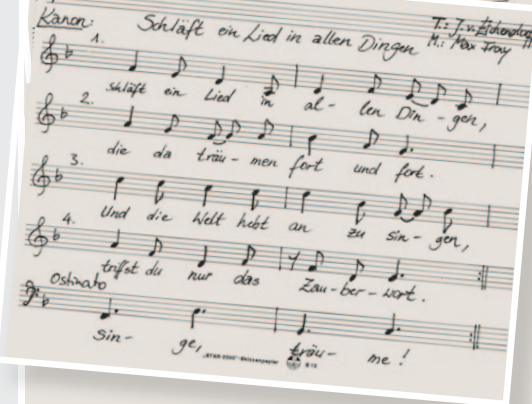 Kanon: Schläft ein Lied in allen Dingen T.: J. v. Eichendorff
M.: Max Frey
1.
Schläft ein Lied in al- len Din- gen,
2.
die da träu- men fort und fort.
3.
Und die Welt hebt an zu sin- gen,
4.
triffst du nur das Zau- ber- wort.
Ostinato
sin- ge, träu- me!